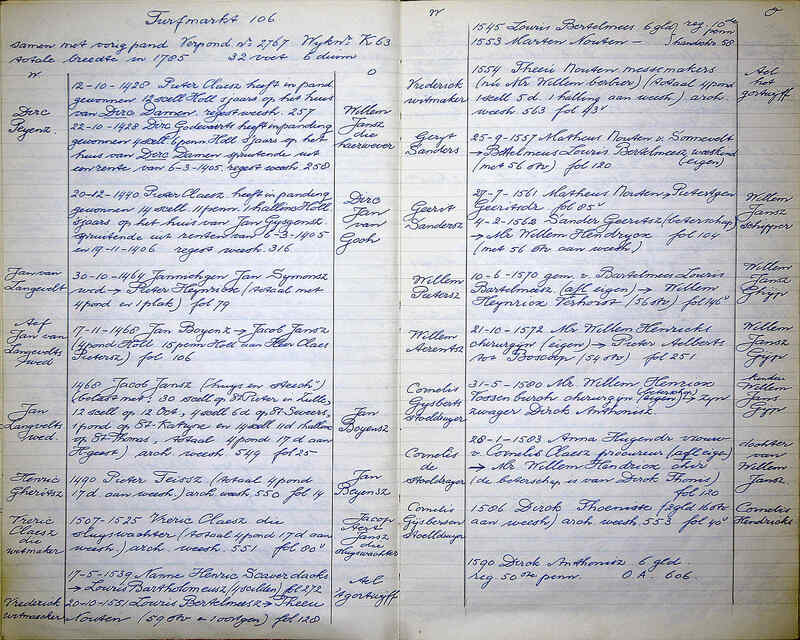 Turfmarkt 106
samen met vorig pand Verpond nº 2767 Wykn. K 63
totale breedte in 1785 32 voet 6 duim
W O
12-10-1428 Pieter Claesz heeft in pand
gewonnen 12 scell Holl sjaars op het huis
van Dirc Damen. regest weesh. 257
22-10-1428 Dirc heeft inpanding
gewonnen 4 scell 6 penn Holl sjaars op het
huis van Dirc Damen spruitende uit
rente van 6-3-1405. regest weesh 258
Dirc
Willem
Jansz
die
haerwever
20-12-1440 Pieter Claesz heeft in panding
gewonnen 14 scell 11 penn 1 halling Holl
sjaars op het huis van Jan
spruitende uit renten van 6-3-1405
en 19-11-1406 regest weesh. 316
Dirc
Jan
van
Gooh
Jan van
Langevelt
30-10-1464 Jan Symonsz
wed → Pieter Heynricx (totaal met
4 pond en 1 plak) fol 79
Aef
Jan van
Langevelts
wed
17-11-1468 Jan Boyenz → Jacob Jansz
(4 pond Holl 15 penn Holl aan Heer Claes
Pietersz) fol 106
1460 Jacob Jansz (huys en)
(belast met: 30 scell op St Pieter in Zulle,
12 scell op 12 Oct, 4 scell 6 d op St Severs,
1 pond op St Katryne en 14 scell 11 d halling
op St Thomas, totaal 4 pond 17 d aan
H geest) arch weesh. 549 fol 25
Jan
Langevelts
wed.
Jan
Boyensz
Henric
Gheritsz
1490 Pieter Teissz (totaal 4 pond
17 d aan weesh) arch weesh 550 fol 14
Jan
Boyensz
Vreric
Claesz
die
witmaker
1507-1525 Vreric Claesz die
sluyswachter (totaal 4 pond 17 d aan
weesh) arch weesh. 551 fol 80ᵛ
Jacop
Aert
Jansz
die
sluyswachter
17-5-1539 Nanne Henric
→ Louris Bartholomeusz (4 scelden) fol 272
Ael
Vrederick
witmaecker
20-10-1551 Louris Bertelmeesz → Theeu
Nouten (59 stv + 1 oortgen) fol 128
W O
1545 Louris Bertelmees 6 gld reg. 10de penn
1553 Marten Nouten — handschr 58
Vrederick
witmaker
1554 Theeu Nouten messemakers
(nu Mr Willem berbier) (totaal 4 pond
1 scell 5 d. 1 halling aan weesh) arch.
weesh 563 fol 43ᵛ
Ael
Geryt
Sanders
25-9-1557 Matheus Nouten v.
→ Bertelmeus Louris Bertelmeesz
(met 56 stv) fol 120 (eigen)
Geerit
Sandersz
27-7-1561 Matheus Nouten → Pietertgen
Geeritsdr fol 85ᵛ
4-2-1562 Sander Geeritsz (beterschap)
→ Mr Willem Hendrycx fol 104
(met 56 stv aan weesh)
Willem
Jansz
schipper
Willem
Pietersz
10-6-1570 gem. v. Bertelmees Louris
Bertelmeesz (afl eigen) → Willem
Heynricx Verhorst (56 stv) fol 146ᵛ
Willem
Jansz
Gyp
Willem
Aerentsz
21-10-1572 Mr Willem Henricks
chirurgyn (eigen) → Pieter Aelberts
tot Boscoop (54 stv) fol 251
Willem
Jansz
Gyp
Cornelis
Gysberts
Stoeldrayer
31-5-1580 Mr. Willem Henricx
Vossenburch chirurgyn (eigen) (beterschap) → zyn
zwager Dirck Anthonisz
kinderen
Willem
Jans
Gyp
Cornelis
de
Stoeldrayer
28-1-1583 Anna Hugendr vrouw
v Cornelis Claesz procureur (afl eigen)
→ Mr Willem Hendricx chir
(de beterschap is van Dirck Thonis)
fol 120
dochter
van
Willem
Jansz.
Cornelis
Gijsbersen
Stoelldrayer
1586 Dirck Thoenisse (3 gld 16 stv
aan weesh) arch weesh 553 fol 40ᵛ
Cornelis
Hendricks
1590 Dirck Anthonisz 6 gld.
reg. 50ste penn. O A. 606.